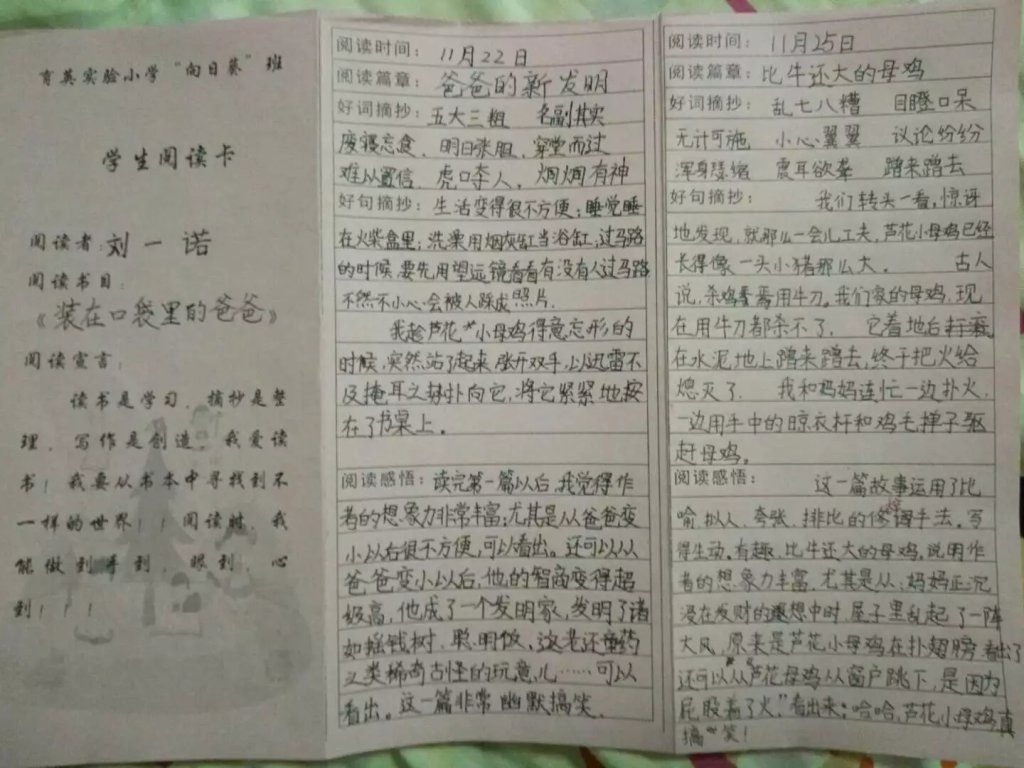 育英实验小学“向日葵”班
学生阅读卡
阅读者:刘一诺
阅读书目:
《装在口袋里的爸爸》
阅读宣言:
读书是学习,摘抄是整
理,写作是创造,我爱读
书!我要从书本中寻找到不
一样的世界!!阅读时,我
能做到手到,眼到,心
到!!!
阅读时间: 11月22日
阅读篇章:爸爸的新发明
好词摘抄:五大三粗 名副其实
废寝忘食、明目张胆、穿堂而过
难以置信、虎口夺人、炯炯有神
好句摘抄:生活变得很不方便;睡觉睡
在火柴盒里;洗澡用烟灰缸当浴缸,过马路
的时候,要先用望远镜看看有没有人过马路
不然不小心会被人踩成照片.
我趁芦花小母鸡得意忘形的
时候,突然站了起来,张开双手,以迅雷不
及掩耳之势扑向它,将它紧紧地按
在了书桌上。
阅读感悟:读完第一篇以后,我觉得作
者的想象力非常丰富;尤其是从爸爸变
小以后很不方便,可以看出。还可以从
爸爸变小以后,他的智商变得超
级高,他成了一个发明家,发明了诸
如摇钱树、聪明饭、这老还童药
之类稀奇古怪的玩意儿……可以
看出。这一篇非常幽默搞笑.
阅读时间: 11月25日
阅读篇章:比牛还大的母鸡
好词摘抄:乱七八糟 目瞪口呆
无计可施 小心翼翼 议论纷纷
浑身瑟缩 震耳欲聋 蹭来蹭去
好句摘抄: 我们转头一看,惊讶
地发现,就那么一会儿工夫,芦花小母鸡已经
长得像一头小猪那么大。 古人
说,杀鸡焉用牛刀,我们家的母鸡,现
在用牛刀都杀不了. 它着地后
在水泥地上蹭来蹭去,终于把火给
熄灭了. 我和妈妈连忙一边扑火,
一边用手中的晾衣杆和鸡毛掸子驱
赶母鸡。
阅读感悟: 这一篇故事运用了比
喻、拟人、夸张、排比的修辞手法。写
得生动、有趣.比牛还大的母鸡,说明作
者的想象力丰富.尤其是从,妈妈正沉
浸在发财的遐想中时,屋子里乱起了一阵
大风,原来是芦花小母鸡在扑翅膀 看出了
还可以从“芦花母鸡从窗户跳下,是因为
屁股着了火,”看出来;哈哈,芦花小母鸡真
搞笑!